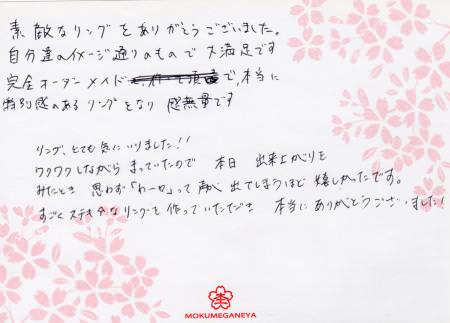 素敵なリングをありがとうございました。
自分達のイメージ通りのもので大満足です
完全オーダーメイドで、本当に
特別感のあるリングとなり 感無量です
リング、とても気にいりました!!
ワクワクしながら まっていたので 本日 出来上がりを
みたとき 思わず「わーっ」って声が出てしまうほど 嬉しかったです。
すごくステキなリングを作っていただき 本当にありがとうございました!
MOKUMEGANEYA